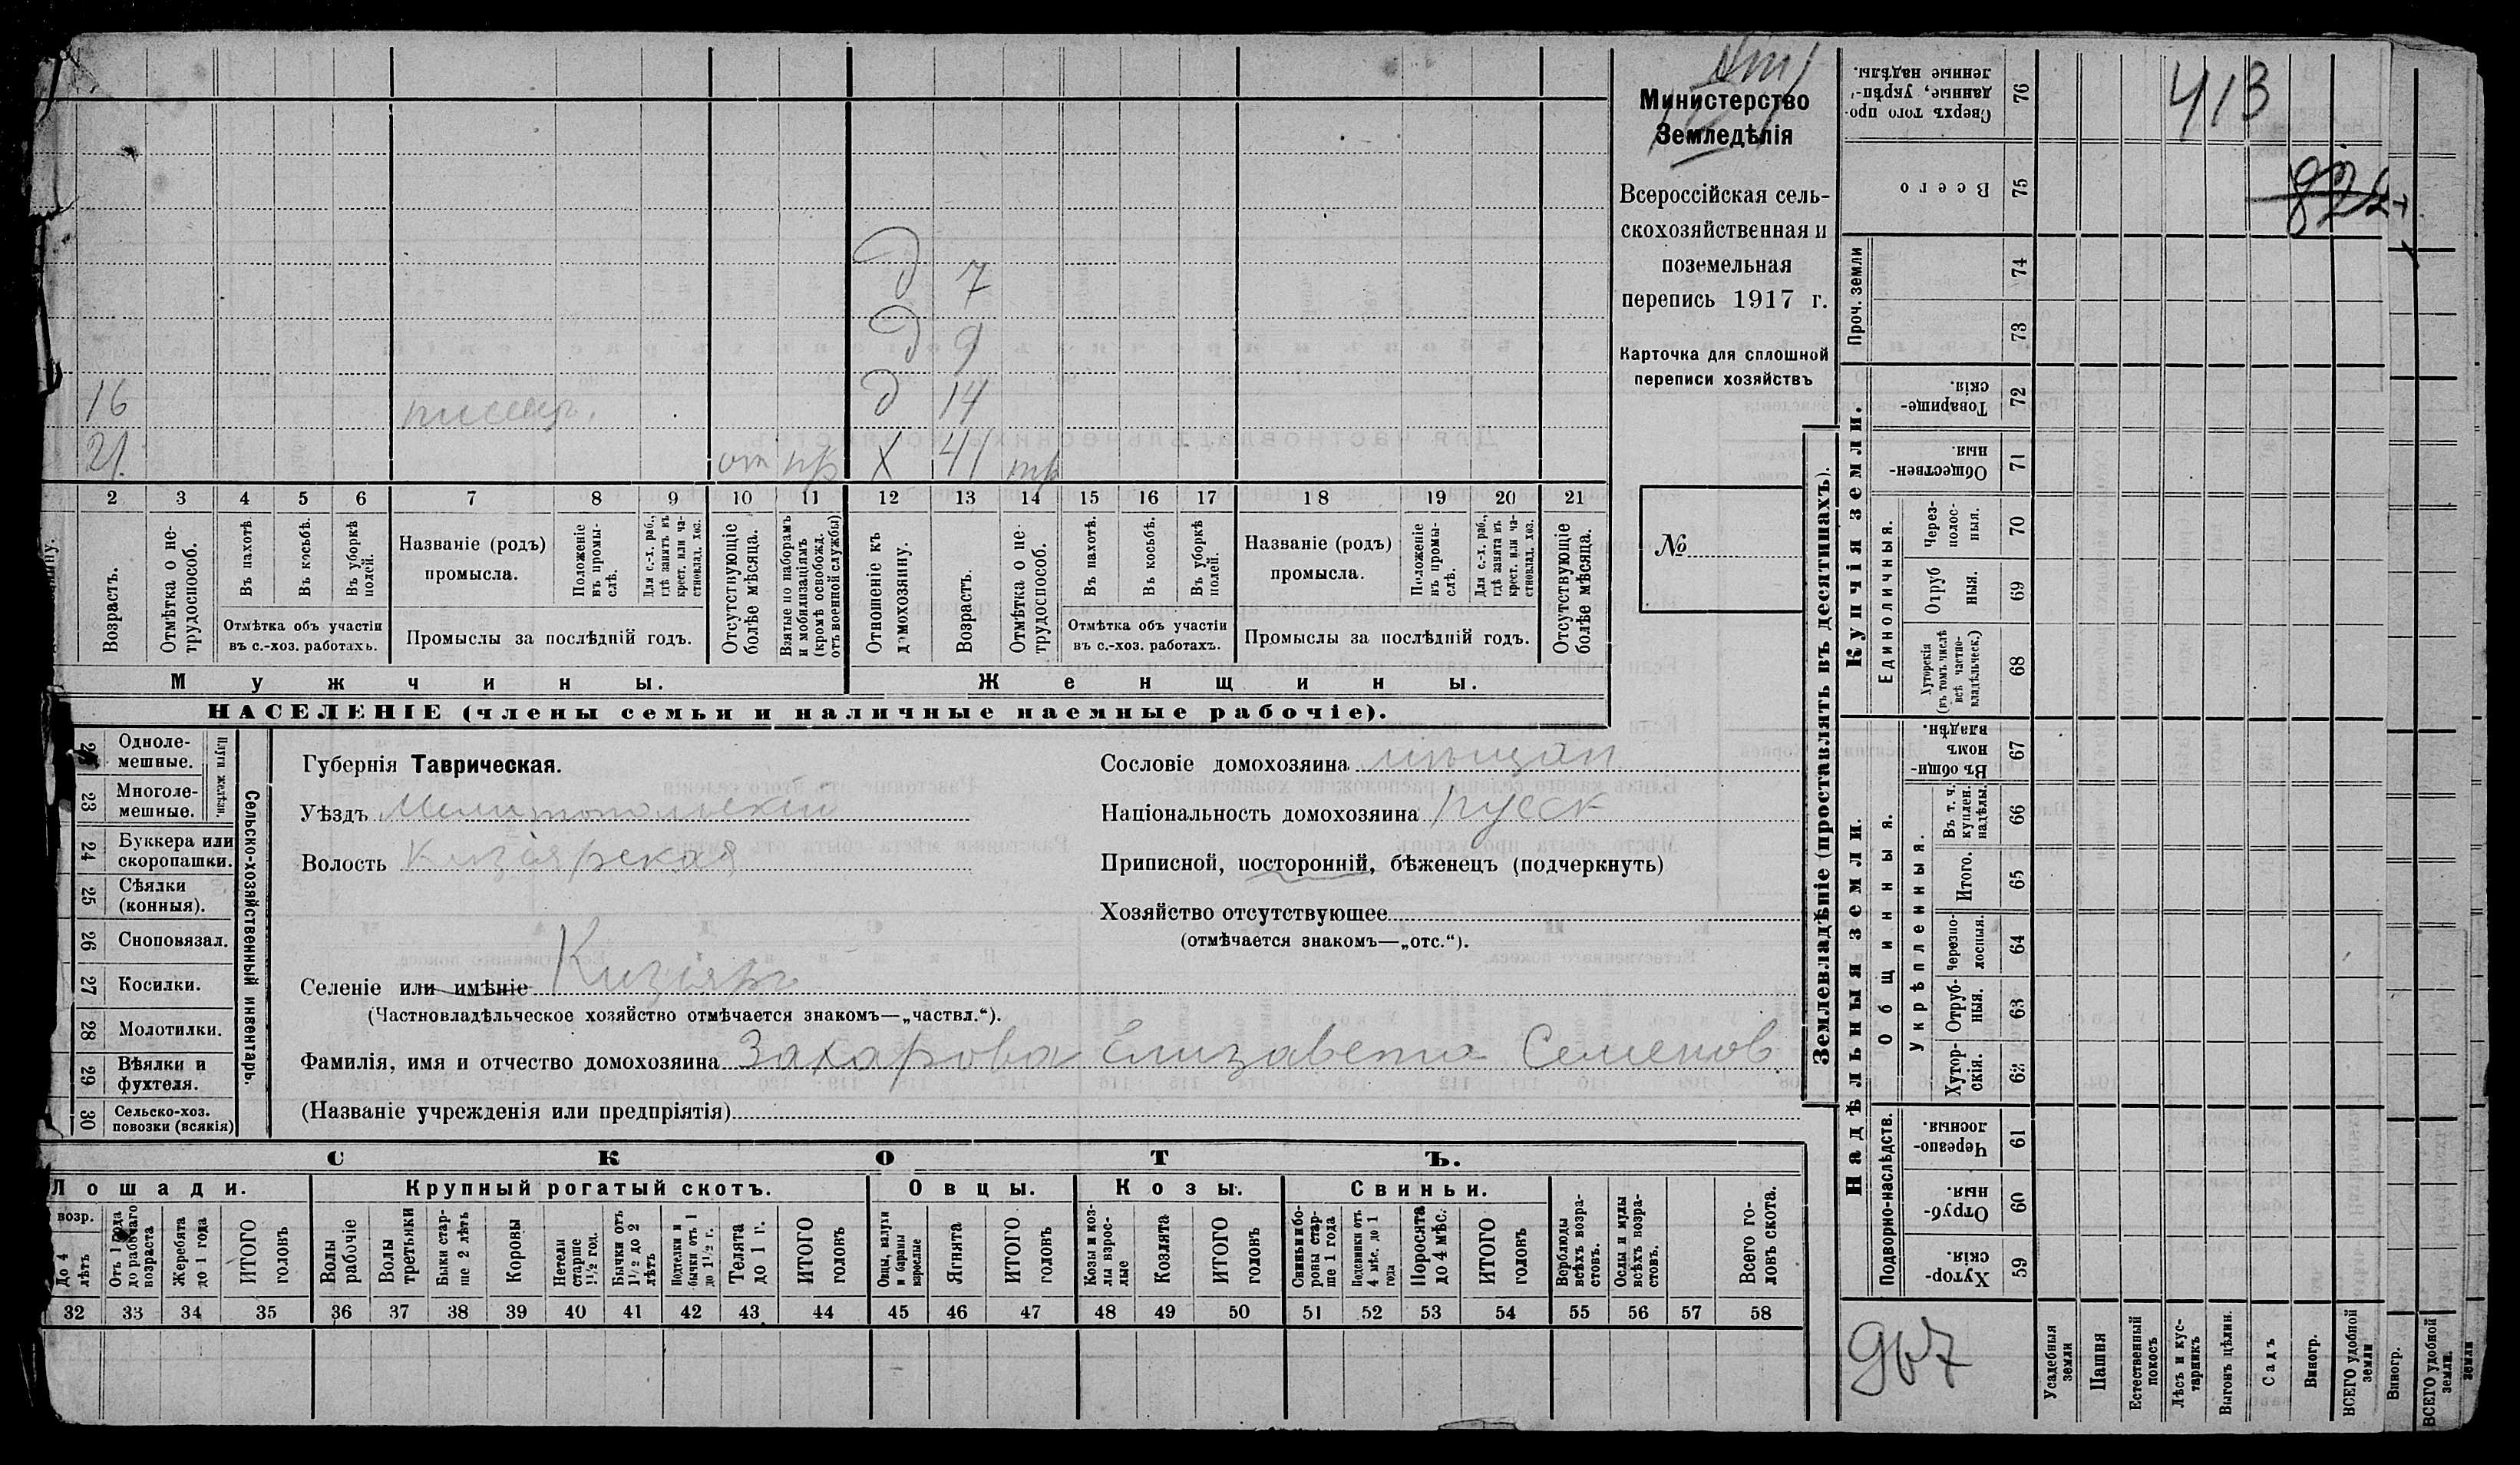 413
822
Министерство
Земледѣлія
Всероссійская сель-
скохозяйственная и
поземельная
перепись 1917 г.
Карточка для сплошной
переписи хозяйствъ
№
д 7
д 9
16 писар. д 14
21. от пр х 41 тр
2 3 4 5 6 7 8 9 10 11 12 13 14 15 16 17 18 19 20 21
Возрастъ.
Отмѣтка о не-
трудоспособ.
Въ пахотѣ.
Въ косьбѣ.
Въ уборкѣ
полей.
Отмѣтка объ участіи
въ с.-хоз. работахъ.
Названіе (родъ)
промысла.
Положеніе
въ промы-
слѣ.
Для с.-х. раб.,
гдѣ занятъ въ
крест. или ча-
стновлад. хоз.
Промыслы за послѣдній годъ.
Отсутствующіе
болѣе мѣсяца.
Взятые по наборамъ
и мобилизаціямъ
(кромѣ освобожд.
отъ военной службы)
Отношеніе къ
домохозяину.
Возрастъ.
Отмѣтка о не-
трудоспособ.
Въ пахотѣ.
Въ косьбѣ.
Въ уборкѣ
полей.
Отмѣтка объ участіи
въ с.-хоз. работахъ.
Названіе (родъ)
промысла.
Положеніе
въ промы-
слѣ.
Для с.-х. раб.,
гдѣ занята въ
крест. или ча-
стновлад. хоз.
Промыслы за послѣдній годъ.
Отсутствующіе
болѣе мѣсяца.
Мужчины.
Женщины.
НАСЕЛЕНІЕ (члены семьи и наличные наемные рабочіе).
Одноле-
мешные.
23 Многоле-
мешные.
Плуги желѣзн.
24 Буккера или
скоропашки.
25 Сѣялки
(конныя).
26 Сноповязал.
27 Косилки.
28 Молотилки.
29 Вѣялки и
фухтеля.
30 Сельско-хоз.
повозки (всякія)
Сельско-хозяйственный инвентарь.
Губернія Таврическая.
Уѣздъ Мелитопольскій
Волость Кизіярская
Сословіе домохозяина мѣщан
Національность домохозяина русск
Приписной, посторонній, бѣженецъ (подчеркнуть)
Хозяйство отсутствующее
(отмѣчается знакомъ—„отс.“).
Селеніе или имѣніе Кизіяръ
(Частновладѣльческое хозяйство отмѣчается знакомъ—„частвл.“).
Фамилія, имя и отчество домохозяина Захарова Елизавета Семенов
(Названіе учрежденія или предпріятія)
СКОТЪ.
Лошади.
Крупный рогатый скотъ.
Овцы.
Козы.
Свиньи.
возр.
До 4
лѣтъ
Отъ 1 года
до рабочаго
возраста
Жеребята
до 1 года
ИТОГО
головъ
Волы
рабочіе
Волы
третьяки
Быки стар-
ше 2 лѣтъ
Коровы
Нетели
старше
1½ год.
Бычки отъ
1½ до 2
лѣтъ
Подтелки и
бычки отъ 1
до 1½ г.
Телята
до 1 г.
ИТОГО
головъ
Овцы, валухи
и бараны
взрослые
Ягнята
ИТОГО
головъ
Козы и коз-
лы взрос-
лые
Козлята
ИТОГО
головъ
Свиньи и бо-
ровы стар-
ше 1 года
Подсвинки отъ
4 мѣс. до 1
года
Поросята
до 4 мѣс.
ИТОГО
головъ
Верблюды
всѣхъ возра-
стовъ.
Ослы и мулы
всѣхъ возра-
стовъ.
Всего го-
ловъ скота.
32 33 34 35 36 37 38 39 40 41 42 43 44 45 46 47 48 49 50 51 52 53 54 55 56 57 58
Землевладѣніе (проставлять въ десятинахъ).
Надѣльныя земли.
Купчія земли.
Проч. земли
Подворно-наслѣдств.
Общинныя.
Укрѣпленныя.
Единоличныя.
Сверхъ того про-
данные, укрѣп-
ленные надѣлы.
76
Всего
75
74
73
Товарище-
скія.
72
Обществен-
ныя
71
Через-
полос-
ныя.
70
Отруб
ныя.
69
Хуторскія
(въ томъ числѣ
всѣ частно-
владѣльческ.)
68
Въ общи-
номъ
владѣн.
67
Въ т. ч.
куплен.
надѣлы.
66
Итого.
65
Черезпо-
лосныя.
64
Отруб-
ныя.
63
Хутор-
скія.
62
Черезпо-
лосныя.
61
Отруб-
ныя.
60
Хутор-
скія.
59
967
Усадебныя
земли
Пашня
Естественный
покосъ
Лѣсъ и кус-
тарникъ
Выгонъ цѣлин.
Садъ
Виногр.
ВСЕГО удобной
земли
Виногр.
ВСЕГО удобной
земли.
земли